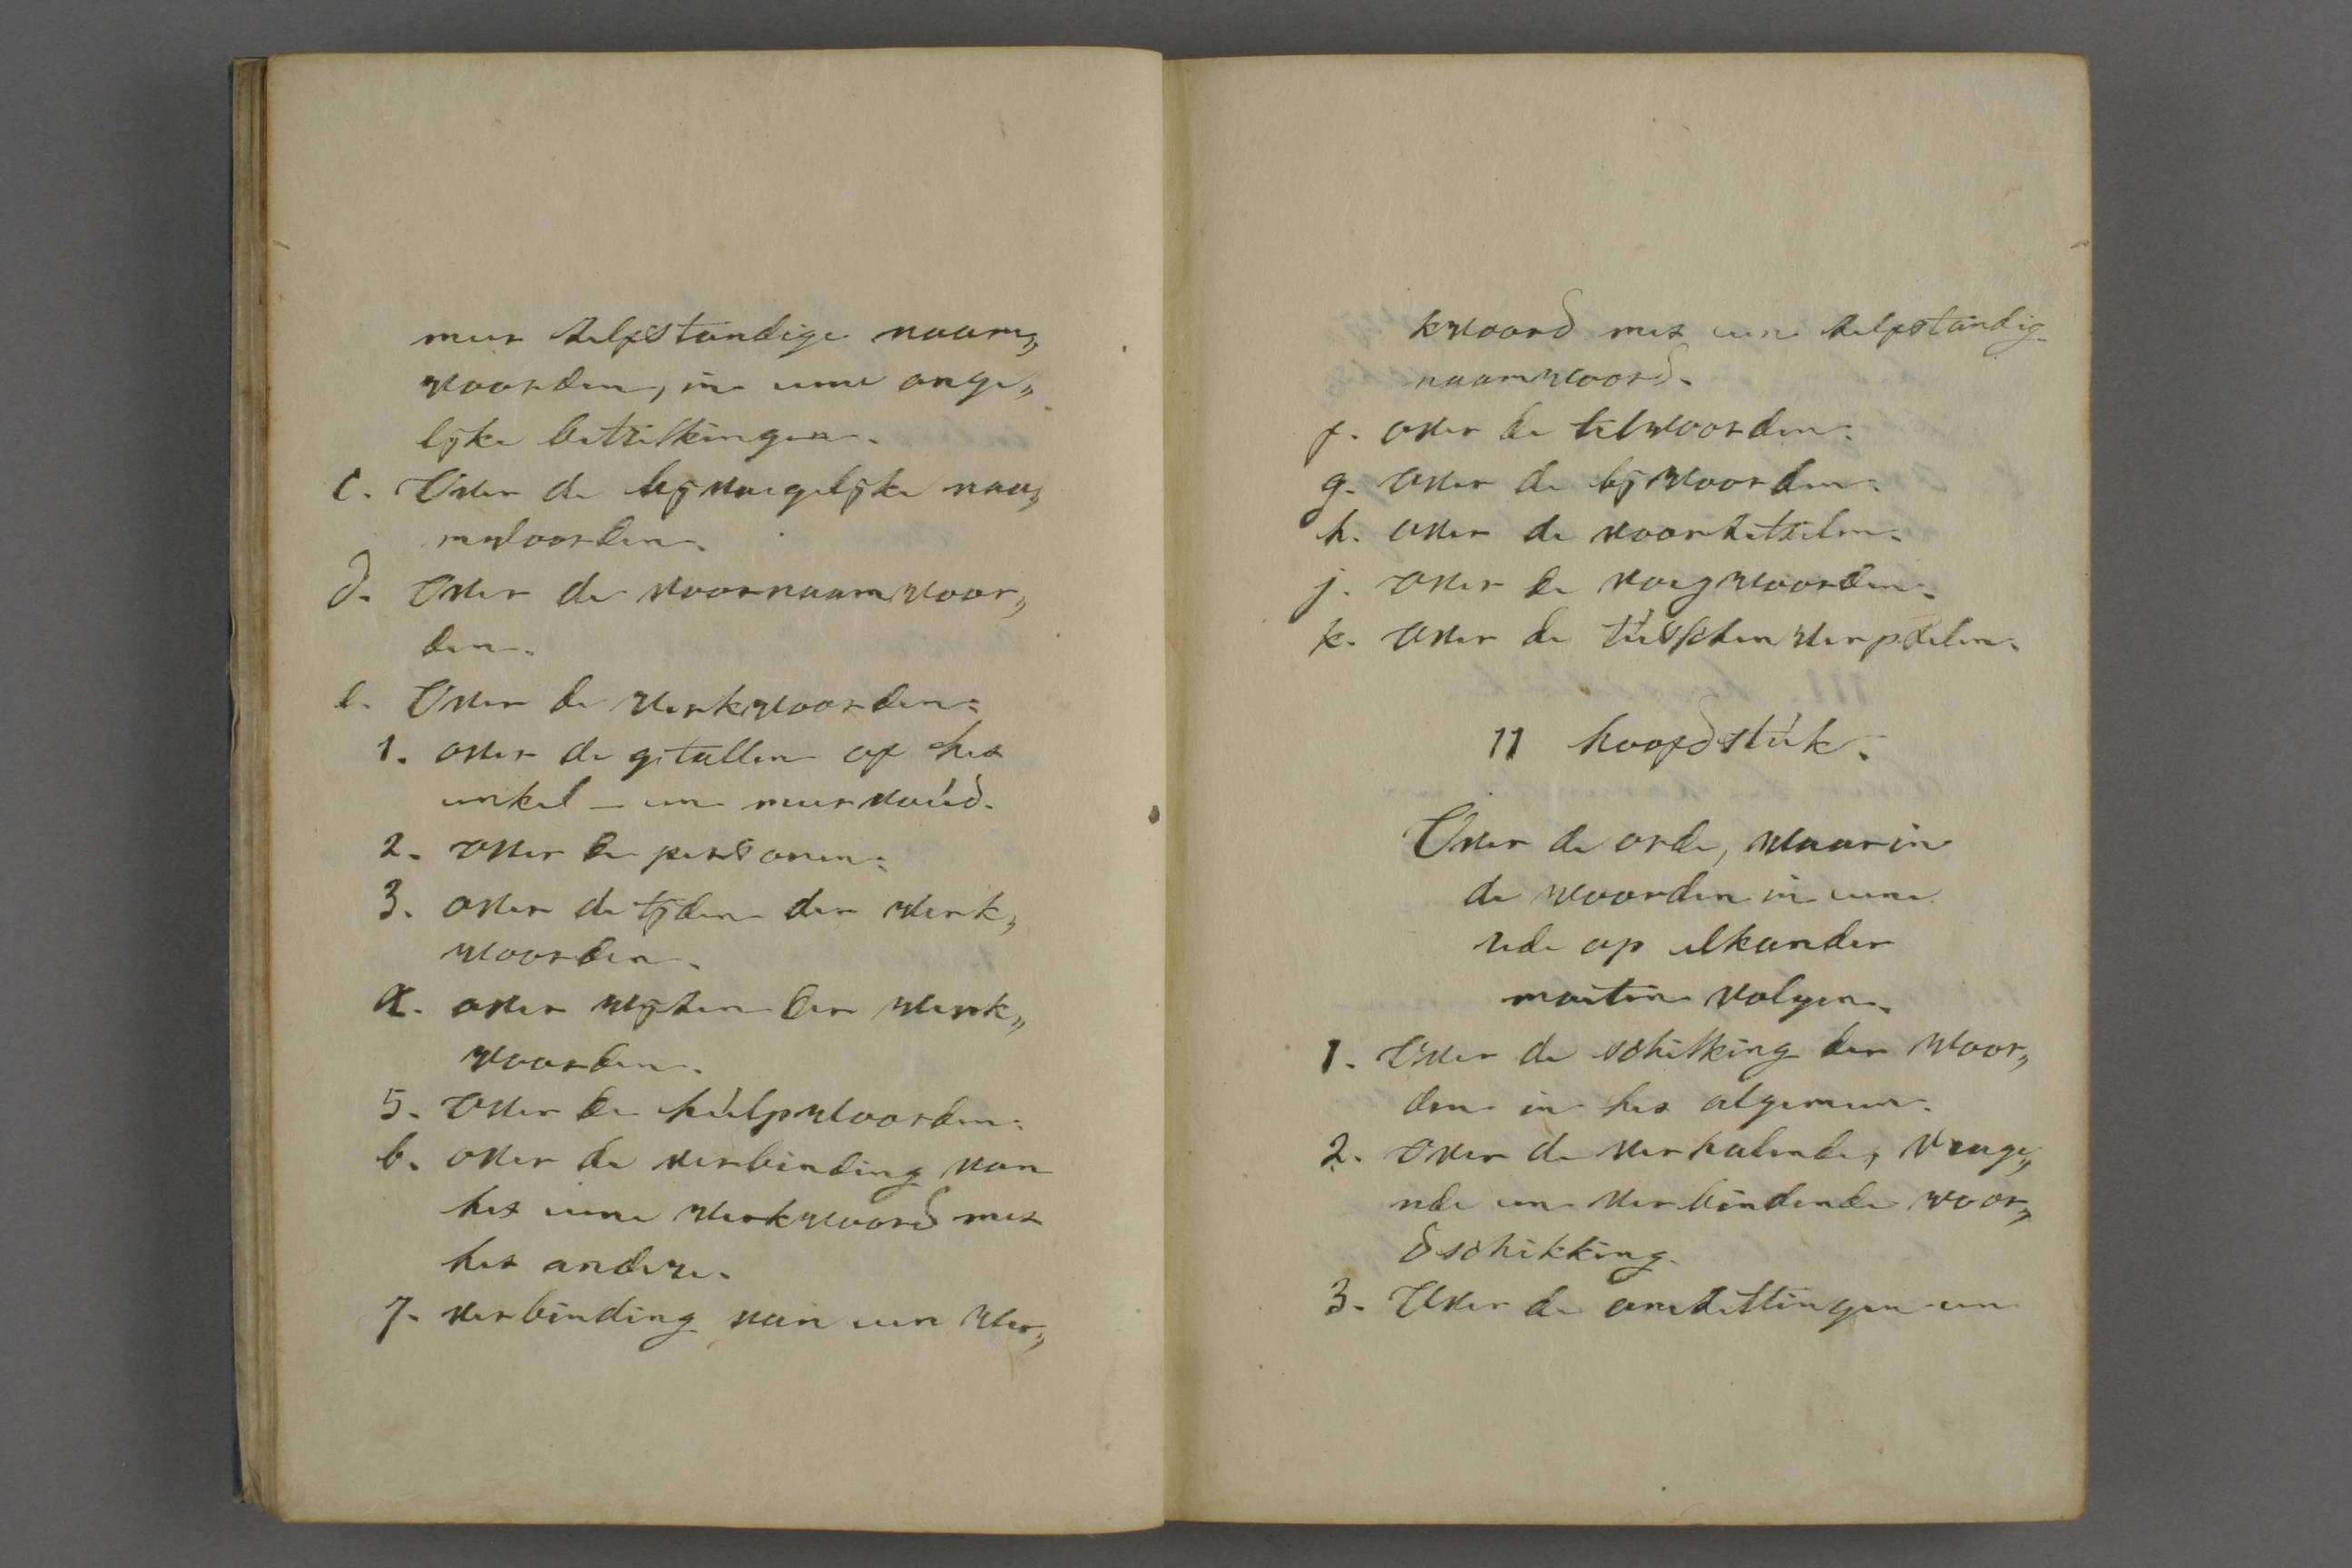 meer zelfstandige naam„
woorden, in eene onge„
lijke betrekkingen.
c. Over de bijvoegelijke naa„
mwoorden.
d. Over de voornaamwoor„
den.
e. Over de werkwoorden:
1. over de getallen of het
enkel – en meervoúd.
2. over de persoonen:
3. over de tijden der werk„
woorden.
4. over wijzen der werk„
woorden.
5. over de húlpwoorden:
6. over de verbinding van
het eene werkwoord met
het andere.
7. verbinding van een wer„
kwoord met een zelfstandig
naamwoord.
f. over de telwoorden:
g. over de bijwoorden:
h. over de voorzetselen:
j. over de voegwoorden:
k. over de tússchenwerpselen:
11 hoofdstúk.
Over de orde, waarin
de woorden in eene
rede op elkander
moeten volgen.
1. Over de schikking der woor„
den in het algemeen.
2. over de verhalende, vrage„
nde en verbindende woor„
dschikking.
3. Over de omzettingen en